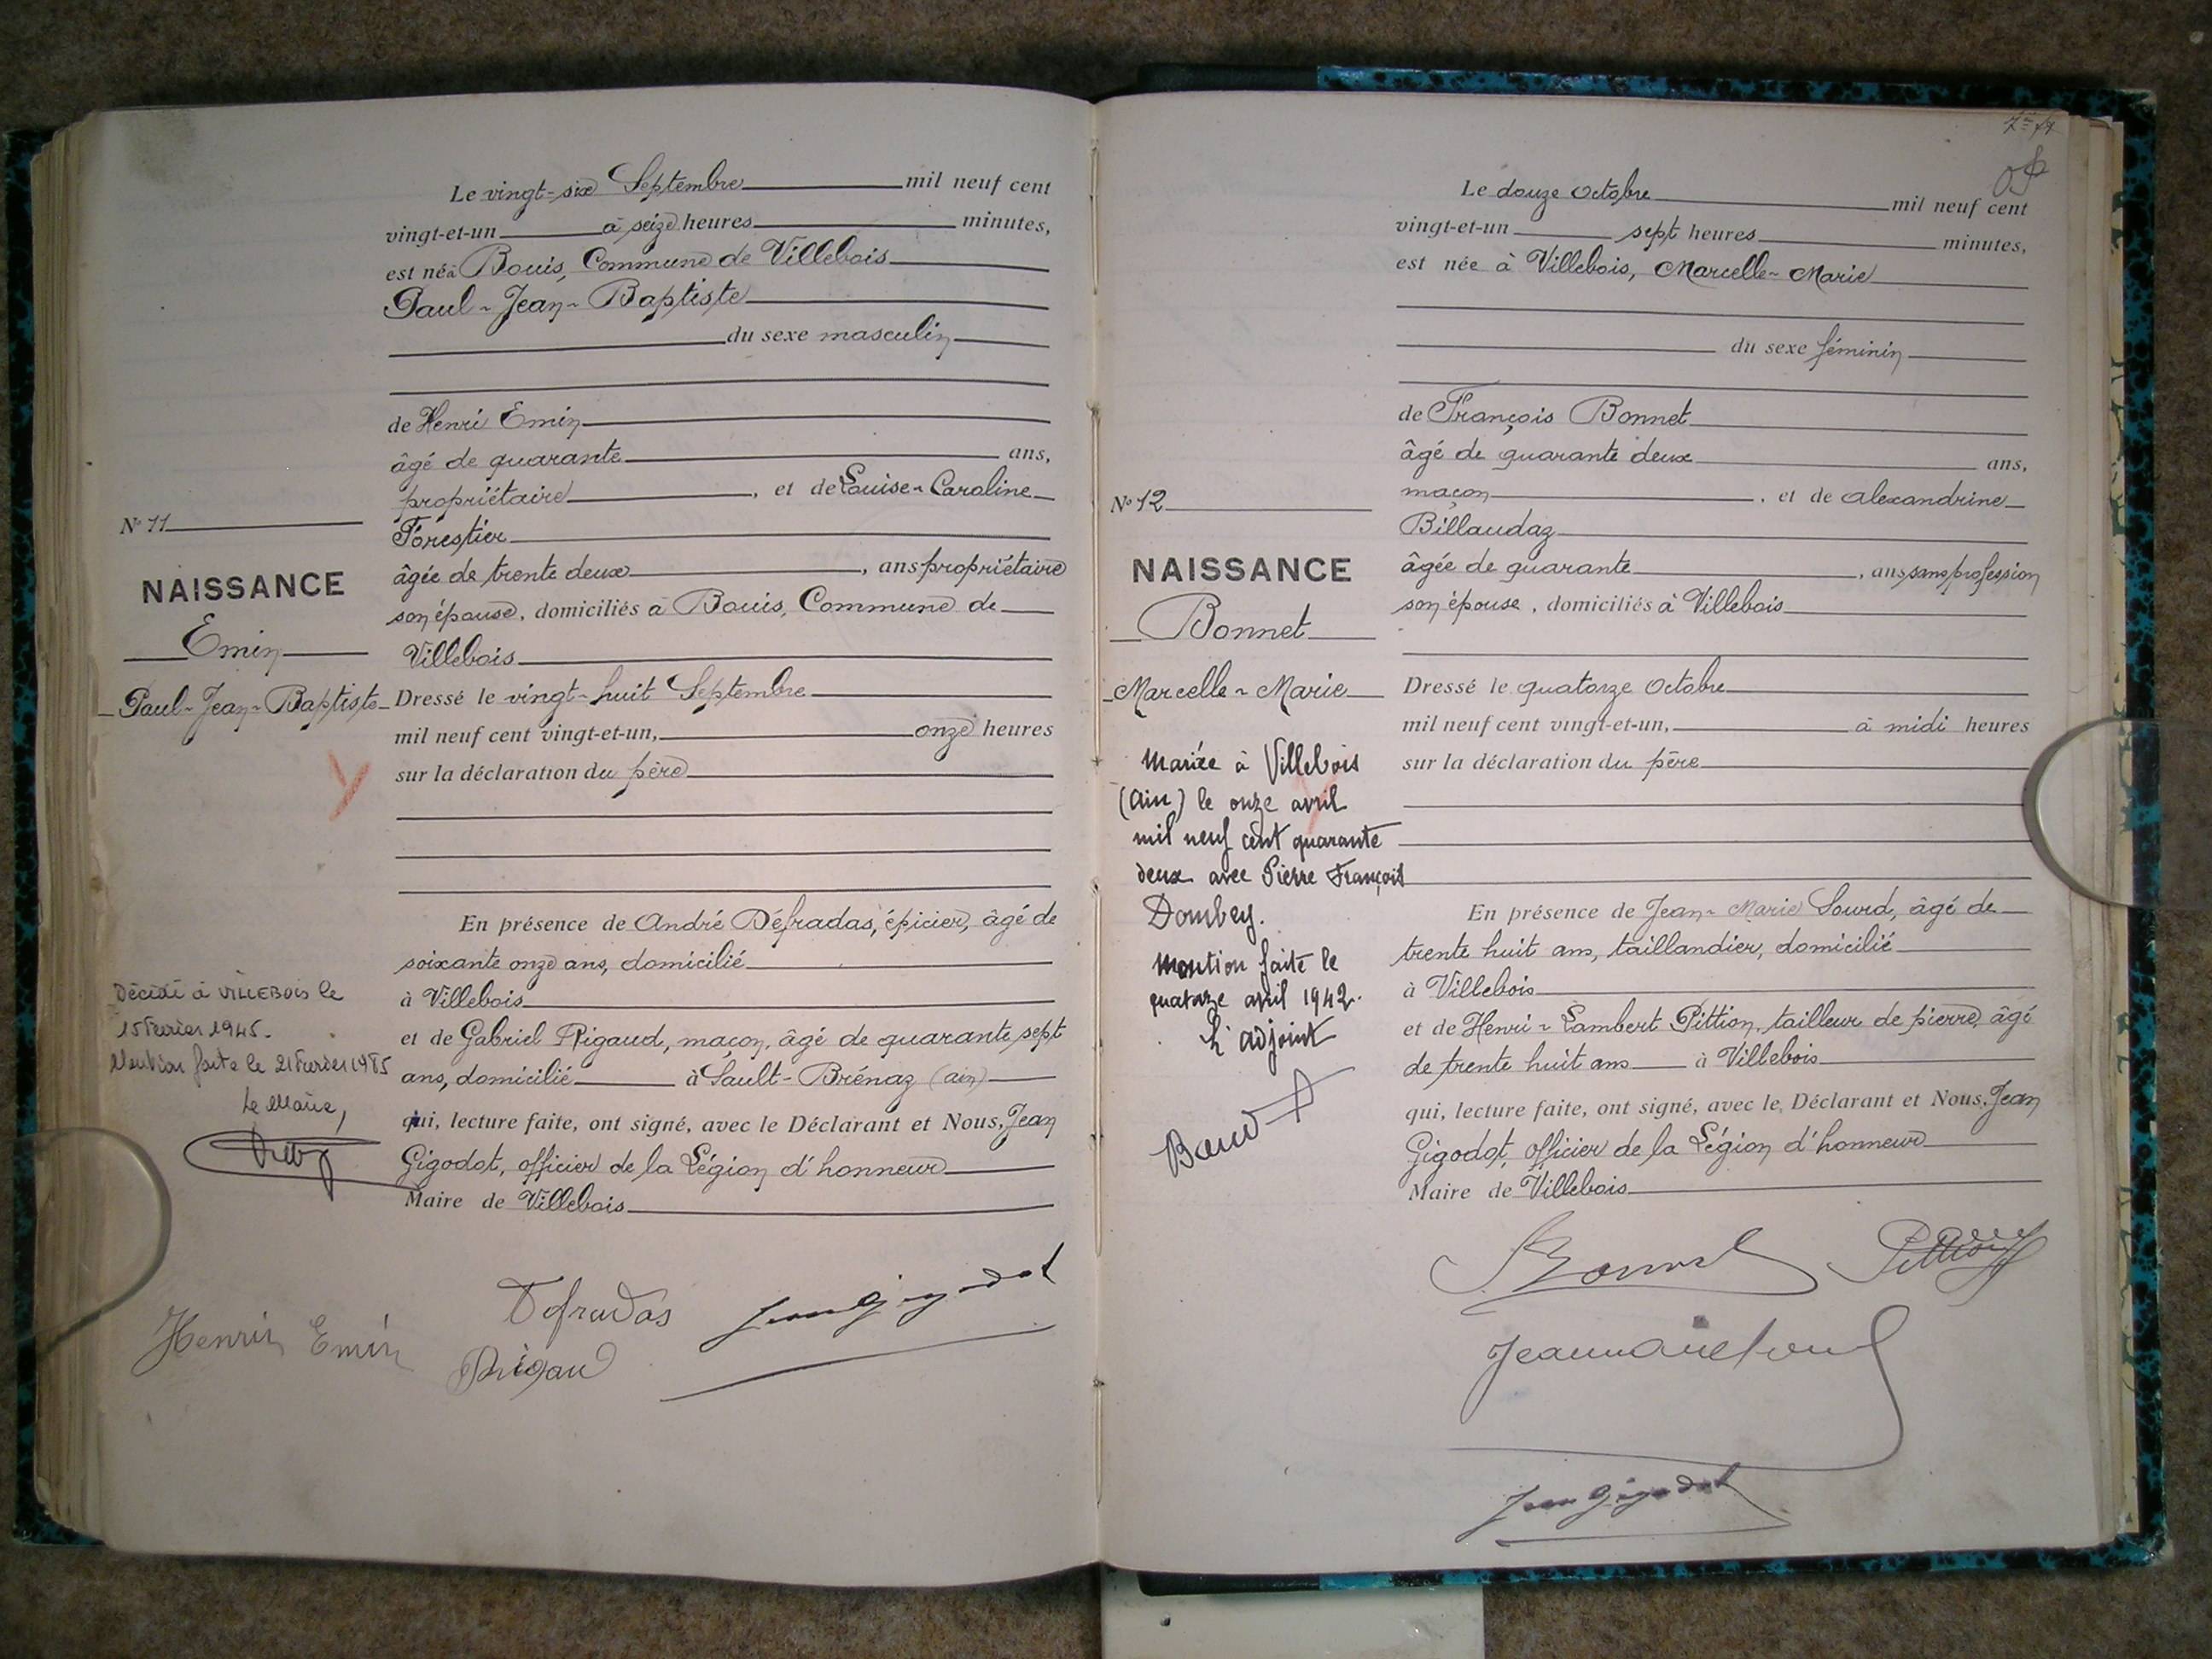 Le vingt-six Septembre mil neuf cent
vingt-et-un à seize heures minutes,
est né à Bouis, Commune de Villebois
Paul-Jean-Baptiste
du sexe masculin
de Henri Emin
âgé de quarante ans,
propriétaire, et de Louise-Caroline
Forestier
âgée de trente deux, ans propriétaire
son épouse, domiciliés à Bouis, Commune de
Villebois
Dressé le vingt-huit Septembre
mil neuf cent vingt-et-un, onze heures
sur la déclaration du père
En présence de André Défradas, épicier, âgé de
soixante onze ans, domicilié
à Villebois
et de Gabriel Rigaud, maçon, âgé de quarante sept
ans, domicilié à Sault-Brénaz (ain)
qui, lecture faite, ont signé, avec le Déclarant et Nous, Jean
Gigodot, officier de la Légion d'honneur
Maire de Villebois
N° 11
NAISSANCE
Emin
Paul-Jean-Baptiste
Décédé à VILLEBOIS le
15 Février 1945.
Mention faite le 21 Février 1985
Le Maire,
Henri Emin
Defradas
Rigaud
Jean Gigodot
Le douze Octobre mil neuf cent
vingt-et-un sept heures minutes,
est née à Villebois, Marcelle-Marie
du sexe féminin
de François Bonnet
âgé de quarante deux ans,
maçon, et de Alexandrine
Billaudaz
âgée de quarante, ans sans profession
son épouse, domiciliés à Villebois
Dressé le quatorze Octobre
mil neuf cent vingt-et-un, à midi heures
sur la déclaration du père
En présence de Jean-Marie Sourd, âgé de
trente huit ans, taillandier, domicilié
à Villebois
et de Henri-Lambert Pittion, tailleur de pierre, âgé
de trente huit ans à Villebois
qui, lecture faite, ont signé, avec le Déclarant et Nous, Jean
Gigodot, officier de la Légion d'honneur
Maire de Villebois
N° 12
NAISSANCE
Bonnet
Marcelle-Marie
Mariée à Villebois
(Ain) le onze avril
mil neuf cent quarante
deux avec Pierre François
Dombey.
Mention faite le
quatorze avril 1942.
L'adjoint
Bonnet
Pittion
Jean Marie Sourd
Jean Gigodot